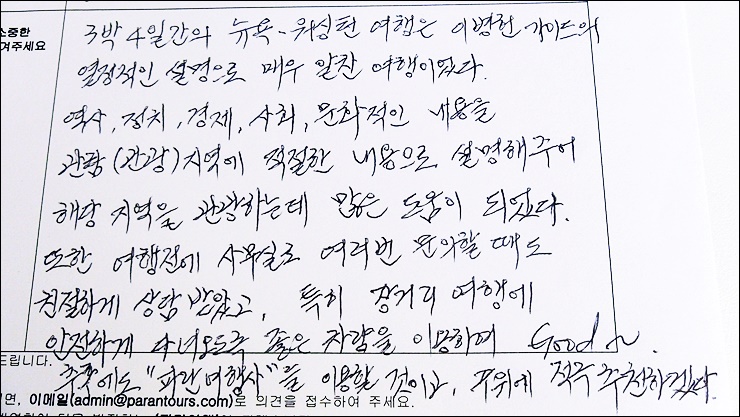 소중한
겨주세요
3박4일간의 뉴욕-워싱턴 여행은 이병헌 가이드의
열정적인 설명으로 매우 알찬 여행이었다.
역사, 정치, 경제, 사회, 문화적인 내용을
관광(관광)지역에 적절한 내용으로 설명해주어
해당 지역을 관광하는데 많은 도움이 되었다.
또한 여행전에 사무실로 여러번 문의할 때도
친절하게 상담 받았고, 특히 장거리 여행에
안전하게 다녀오도록 좋은 차량을 이용하여 Good~.
드립니다.
추후에도 "파란여행사"를 이용할 것이고, 주위에 적극 추천하겠다.
면, 이메일(admin@parantours.com)로 의견을 접수하여 주세요.